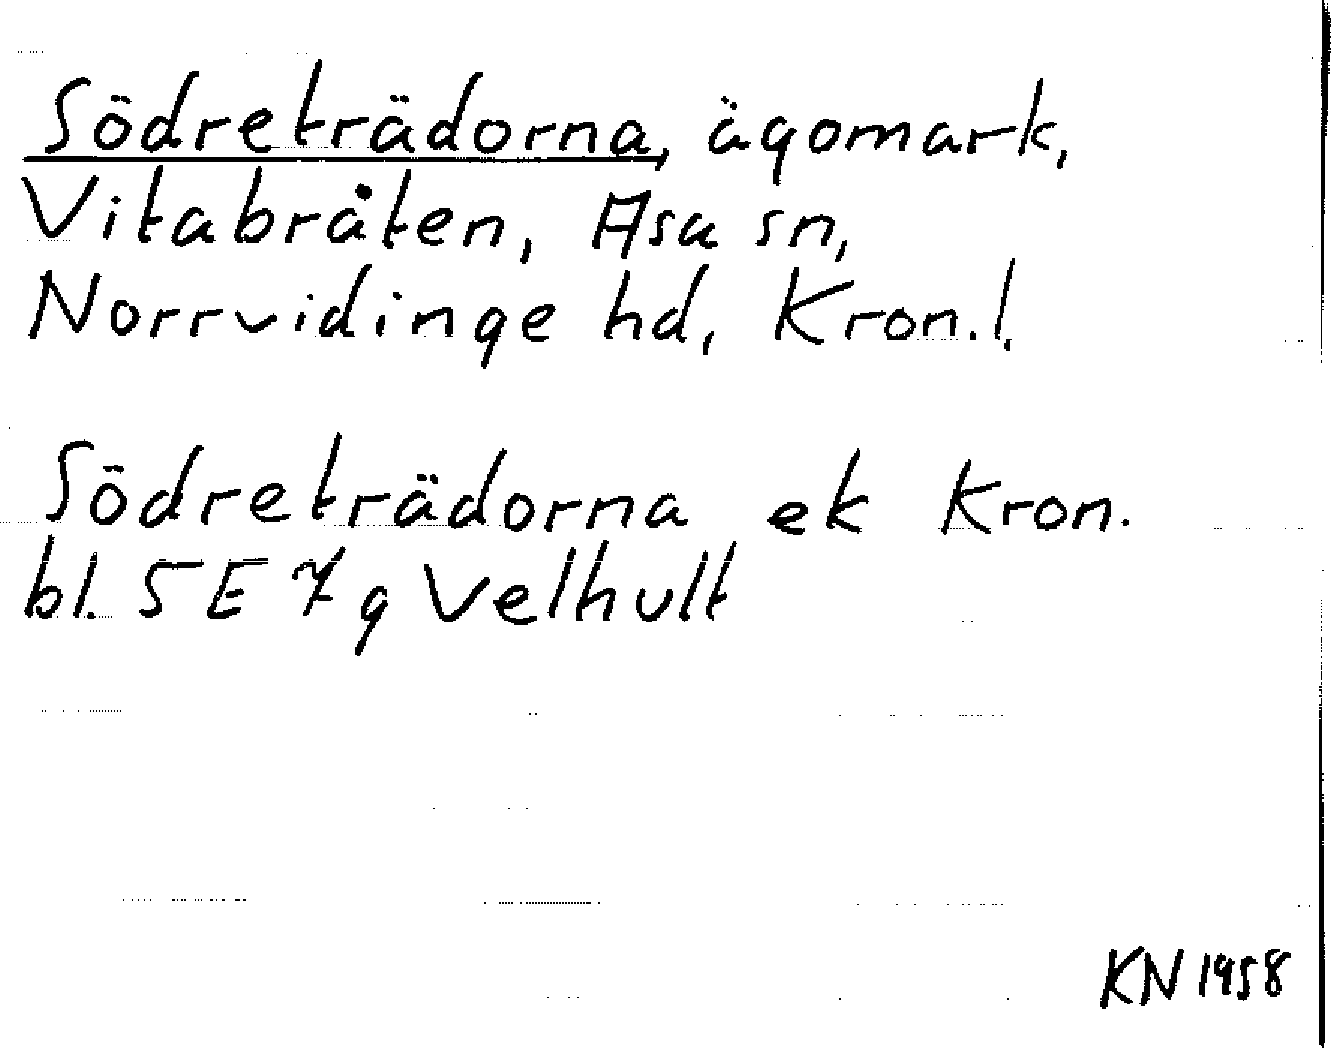 Södreträdorna, ägomark,
Vitabråten, Asa sn,
Norrvidinge hd, Kron.l.
Södreträdorna ek Kron.
bl. 5 E 7 g Velhult
KN 1958